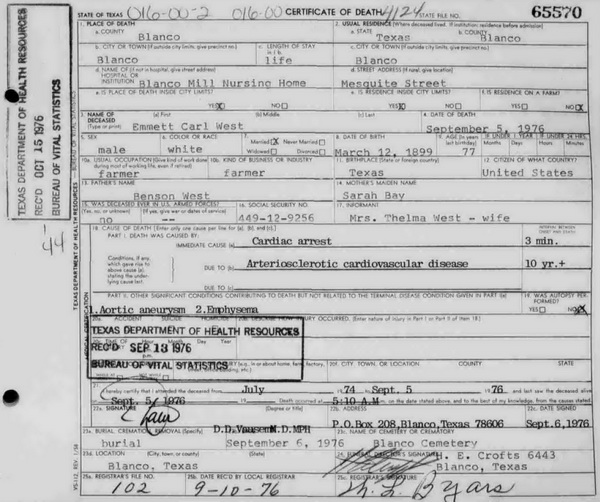 STATE OF TEXAS 016-00-2 016-00 CERTIFICATE OF DEATH 4124 STATE FILE NO. 65570
1. PLACE OF DEATH 2. USUAL RESIDENCE (Where deceased lived. If institution: residence before admission)
a. COUNTY Blanco a. STATE Texas b. COUNTY Blanco
b. CITY OR TOWN (If outside city limits, give precinct no.) c. LENGTH OF STAY c. CITY OR TOWN (If outside city limits, give precinct no.)
Blanco life Blanco
d. NAME OF (If not in hospital, give street address) d. STREET ADDRESS (If rural, give location)
HOSPITAL OR
INSTITUTION Blanco Mill Nursing Home Mesquite Street
e. IS PLACE OF DEATH INSIDE CITY LIMITS? e. IS RESIDENCE INSIDE CITY LIMITS? f. IS RESIDENCE ON A FARM?
YES X NO YES X NO YES NO X
3. NAME OF DECEASED (a) First (b) Middle (c) Last 4. DATE OF DEATH
(Type or print) Emmett Carl West September 5, 1976
5. SEX 6. COLOR OR RACE 7. Married X Never Married 8. DATE OF BIRTH 9. AGE (In years IF UNDER 1 YEAR IF UNDER 24 HRS.
male white Widowed Divorced March 12, 1899 77
10a. USUAL OCCUPATION (Give kind of work done 10b. KIND OF BUSINESS OR INDUSTRY 11. BIRTHPLACE (State or foreign country) 12. CITIZEN OF WHAT COUNTRY?
during most of working life, even if retired)
farmer farmer Texas United States
13. FATHER'S NAME 14. MOTHER'S MAIDEN NAME
Benson West Sarah Bay
15. WAS DECEASED EVER IN U.S. ARMED FORCES? 16. SOCIAL SECURITY NO. 17. INFORMANT
(Yes, no, or unknown) (If yes, give war or dates of service)
no -- 449-12-9256 Mrs. Thelma West - wife
18. CAUSE OF DEATH (Enter only one cause per line for (a), (b), and (c).)
PART I. DEATH WAS CAUSED BY:
IMMEDIATE CAUSE (a) Cardiac arrest 3 min.
Conditions, if any,
which gave rise to
above cause (a), DUE TO (b) Arteriosclerotic cardiovascular disease 10 yr.+
stating the under-
lying cause last. DUE TO (c)
PART II. OTHER SIGNIFICANT CONDITIONS CONTRIBUTING TO DEATH BUT NOT RELATED TO THE TERMINAL DISEASE CONDITION GIVEN IN PART I(a) 19. WAS AUTOPSY PERFORMED?
1. Aortic aneurysm 2. Emphysema YES NO X
20a. ACCIDENT SUICIDE HOW INJURY OCCURRED. (Enter nature of injury in Part I or Part II of item 18.)
TEXAS DEPARTMENT OF HEALTH RESOURCES
REC'D SEP 13 1976
BUREAU OF VITAL STATISTICS
20f. CITY, TOWN, OR LOCATION COUNTY STATE
21. I hereby certify that I attended the deceased from July 19 74 to Sept. 5 19 76 and last saw the deceased alive
on Sept. 5, 1976 Death occurred at 5:10 A.M. on the date stated above, and to the best of my knowledge, from the causes stated.
22a. SIGNATURE (Degree or title) 22b. ADDRESS 22c. DATE SIGNED
D.D. Vausem M.D. MPH P.O. Box 208, Blanco, Texas 78606 Sept. 6, 1976
23a. BURIAL, CREMATION, REMOVAL (Specify) 23c. NAME OF CEMETERY OR CREMATORY
burial September 6, 1976 Blanco Cemetery
23d. LOCATION (City, town, or county) (State) 24. FUNERAL DIRECTOR'S SIGNATURE
H. E. Crofts 6443
Blanco, Texas Blanco, Texas
25a. REGISTRAR'S FILE NO. 25b. DATE REC'D BY LOCAL REGISTRAR 25c. REGISTRAR'S SIGNATURE
102 9-10-76 M. L. Byars
TEXAS DEPARTMENT OF HEALTH RESOURCES
REC'D OCT 15 1976
BUREAU OF VITAL STATISTICS
44
TEXAS DEPARTMENT OF HEALTH RESOURCES
VS-112 REV. 1/58